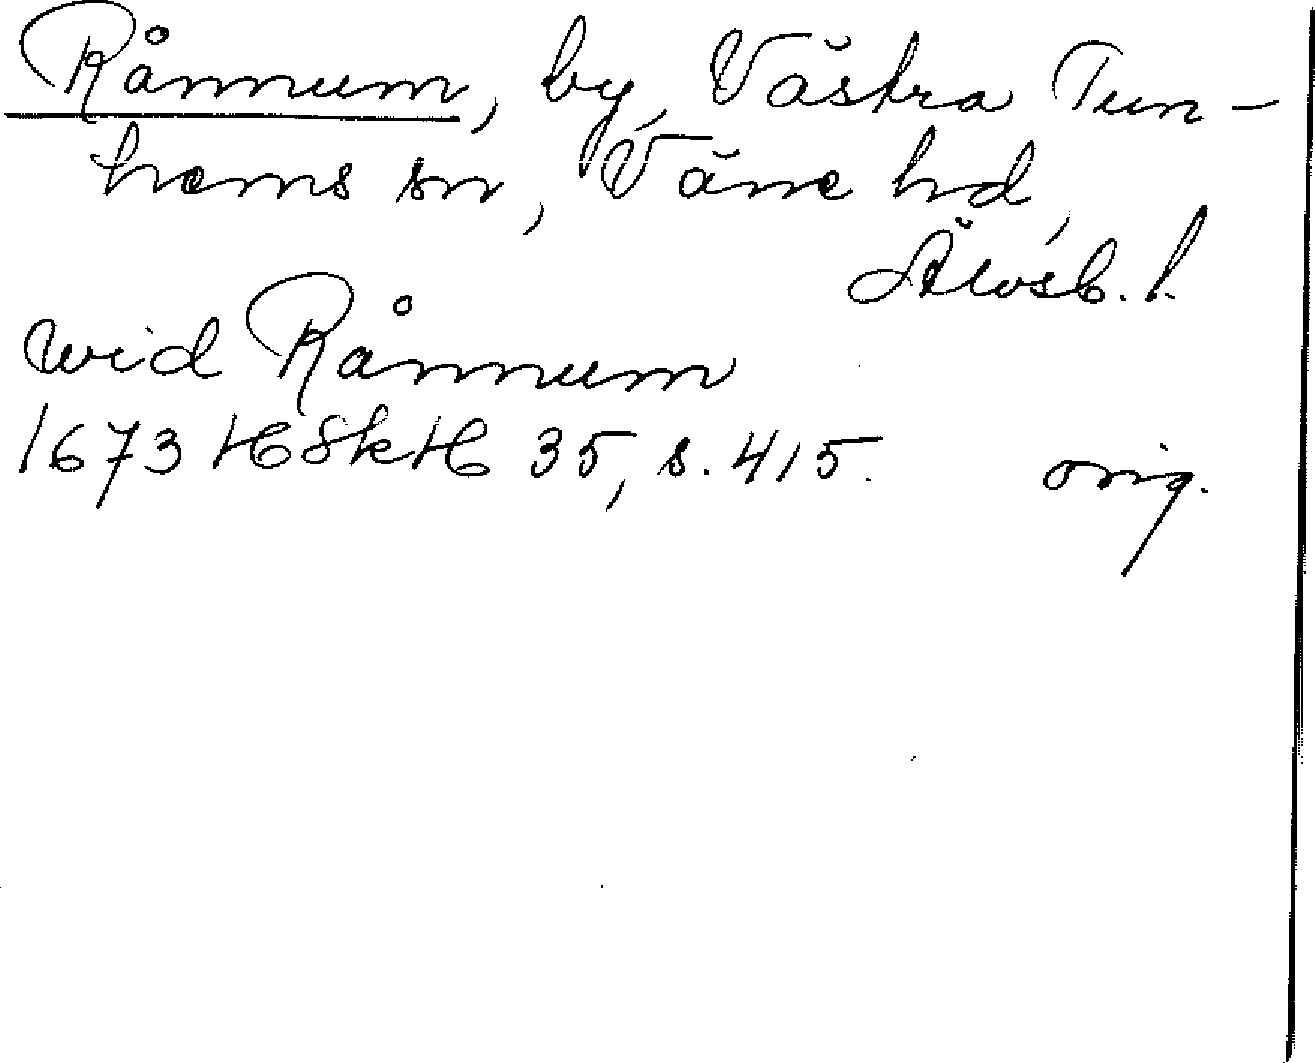 Rånnum, by, Västra Tun-
hems sn, Väne hd,
Älvsb. l.
wid Rånnum
1673 HSkH 35, s. 415. orig.